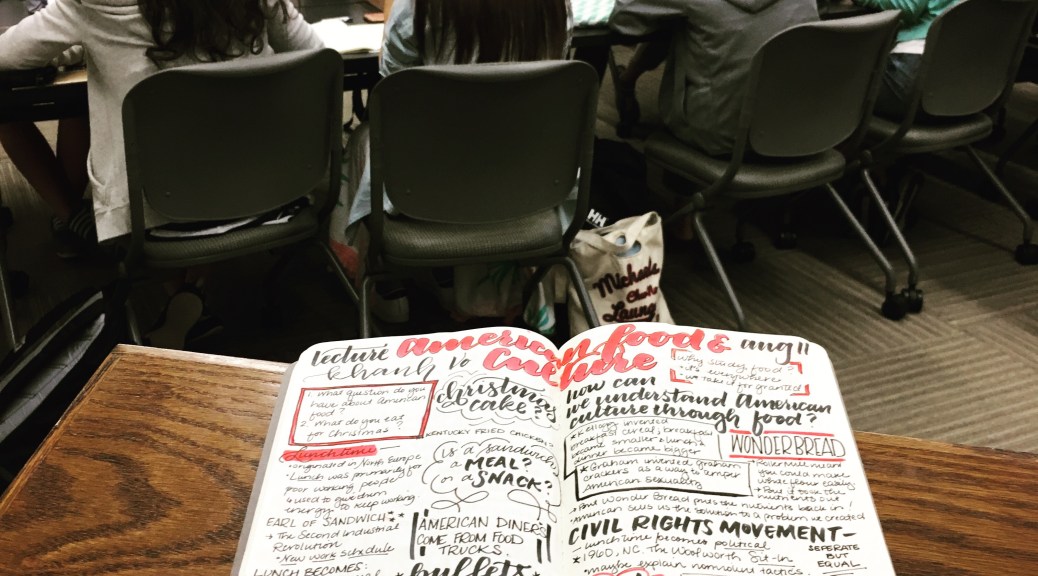 HH
Michaela
Laung
lecture american food & aug 11
khanh vo culture
1. What question do you
have about American
food?
2. What do you eat
for Christmas?
christmas
cake
KENTUCKY FRIED CHICKEN?
(is a sandwich
a MEAL?
or a SNACK?
AMERICAN DINERS
COME FROM FOOD
TRUCKS.
buffets
Lunchtime
• originated in North Europe
• Lunch was primarily for
poor working people
is used to give them
energy to keep working
EARL OF SANDWICH
→ The Second Industrial
Revolution
• New work schedule
LUNCH BECOMES:
Why study food?
• it's everywhere
• we take it for granted
how can
we understand American
culture through food?
* Kellogg invented
breakfast cereal, breakfast
became smaller & lunch &
dinner became bigger
* Graham invented Graham
crackers as a way to temper
American sexuality
WONDERBREAD
→ Roller mill means
you could make
white flour easily
• But it took the
nutrients out
• But Wonder Bread puts the nutrients back in!
• America sells us the solution to a problem we created
CIVIL RIGHTS MOVEMENT-
- lunch time becomes political
* 1960, NC, The Woolworth Sit-In
• maybe explain nonviolent tactics
SEPERATE
BUT
EQUAL